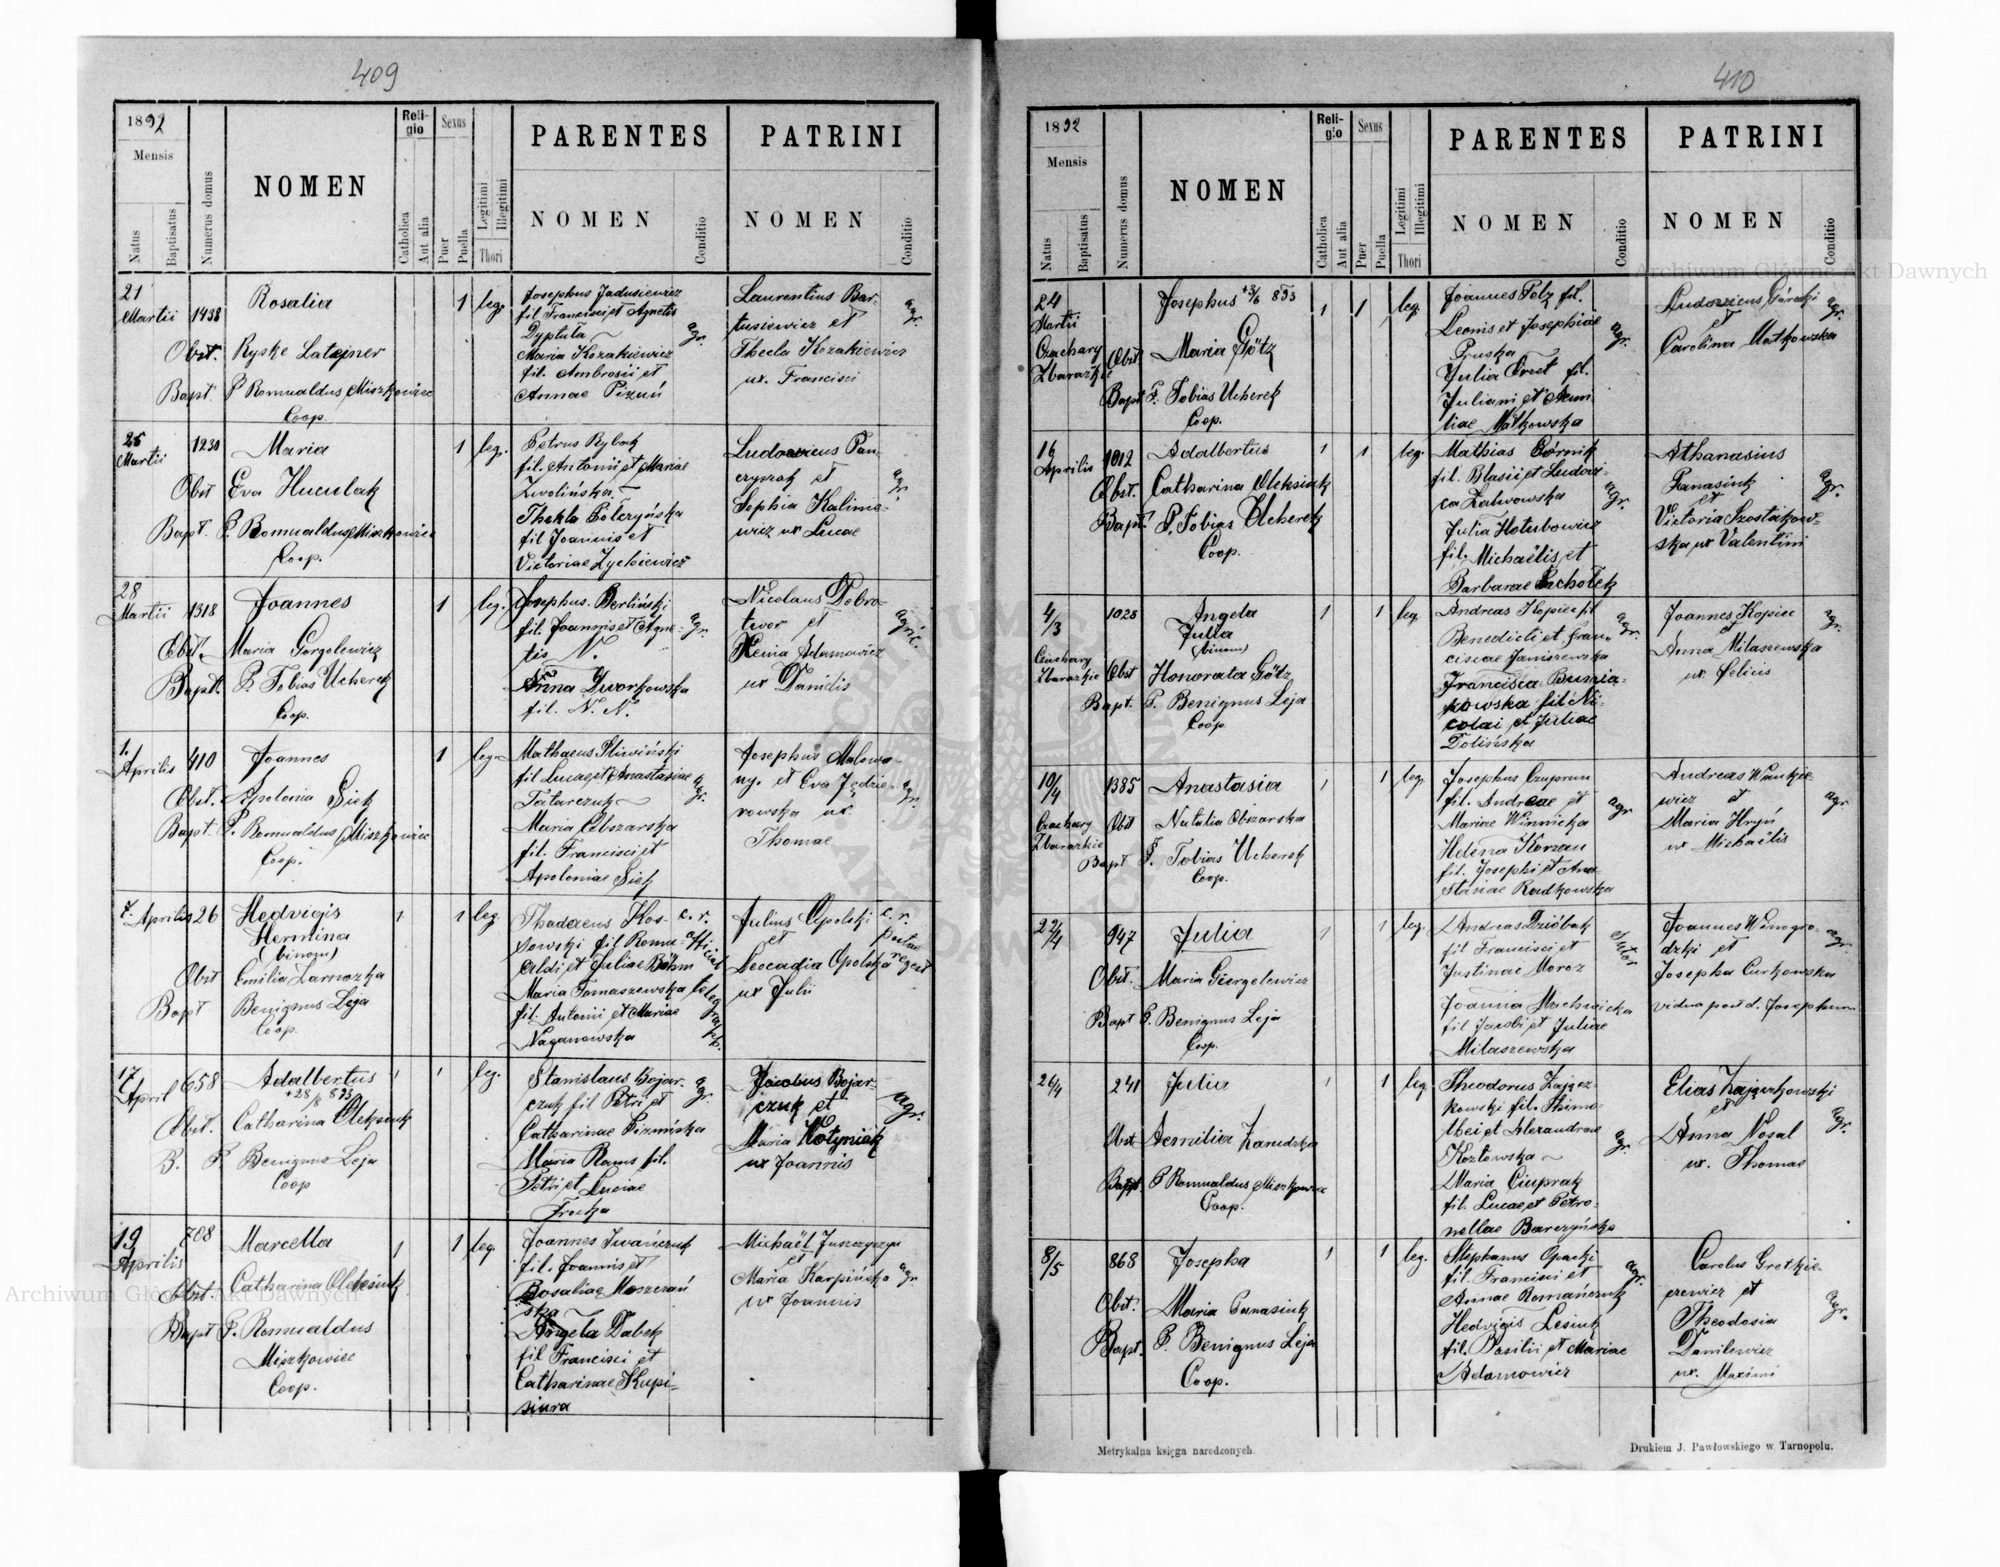 409
1892
Mensis
Natus
Baptisatus
Numerus domus
NOMEN
Reli-
gio
Catholica
Aut alia
Sexus
Puer
Puella
Legitimi
Illegitimi
Thori
PARENTES
NOMEN
Conditio
PATRINI
NOMEN
Conditio
21
Martii
1438
Rosalia
1
leg.
Obst. Ryske Latajner
Bapt. P Romualdus Miszkowiec
Coop.
Josephus Jadusiewicz
fil Francisci et Agnetis
Dyptuła
Maria Kozakiewicz
fil. Ambrosii et
Annae Pizuń
agr.
Laurentius Bar-
tusiewicz et
Thecla Kozakiewicz
ux. Francisci
agr.
25
Martii
1230
Maria
1
leg.
Obst Eva Huculak
Bapt. P. Romualdus Miszkowiec
Coop.
Petrus Rybak
fil. Antonii et Mariae
Zwolińska
Thekla Tolczyńska
fil Joannis et
Victoriae Zyckiewicz
Ludovicus Pan-
czyszak et
Sophia Kalinie-
wicz ux Lucae
agr.
28
Martii
1318
Joannes
1
leg.
Obst. Maria Gorgolewicz
Bapt. P. Tobias Ucherek
Coop.
Josephus Berliński
fil. Joannis et Agne-
tis N.
Anna Dworkowska
fil. N. N.
agr.
Nicolaus Dobro-
twor et
Xenia Adamowicz
ux Danilis
agric.
1.
Aprilis
410
Joannes
1
leg.
Obst. Apolonia Siek
Bapt. P. Romualdus Miszkowiec
Coop.
Mathaeus Sliwiński
fil Lucae et Anastasiae
Tatarczuk
Maria Obszarska
fil. Francisci et
Apoloniae Siek
agr.
Josephus Malowa-
ny. et Eva Jędrze-
rowska ux.
Thomae
agr.
7. Aprilis 26
Hedvigis
Hermina
(binom)
1
1
leg.
Obst Emilia Zamozka
Bapt Benignus Leja
Coop.
Thadaeus Kos-
sowski fil Romu-
aldi et Juliae Böhm
Maria Tomaszewska
fil. Antonii et Mariae
Naganowska
c. r.
offical
telegraph.
Julius Opolski
et
Leocadia Opolska
ux Julii
c. r.
17
April
658
Adalbertus
+28/8 893
1
1
leg.
Obst. Catharina Oleksiuk
B. P. Benignus Leja
Coop
Stanislaus Bojar-
czuk fil Petri et
Catharinae Pizuńska
Maria Rams fil.
Petri et Luciae
Frocka
agr.
Jacobus Bojar-
czuk et
Maria Hołyniak
ux Joannis
agr.
19
Aprilis
708
Marcella
1
1
leg.
Obst. Catharina Oleksiuk
Bapt P. Romualdus
Miszkowiec
Coop.
Joannes Iwańczuk
fil. Joannis et
Rosaliae Moszczań
ska
Angela Dabek
fil Francisci et
Catharinae Kupi-
siura
Michaël Juszczyszyn
et
Maria Karpińska
ux Joannis
agr.
410
1892
Mensis
Natus
Baptisatus
Numerus domus
NOMEN
Reli-
gio
Catholica
Aut alia
Sexus
Puer
Puella
Legitimi
Illegitimi
Thori
PARENTES
NOMEN
Conditio
PATRINI
NOMEN
Conditio
24
Martii
Czachary
Zbarazkie
Josephus +3/6 893
1
1
leg.
Obst. Maria Götz
Bapt P. Tobias Ucherek
Coop.
Joannes Pelz fil.
Leonis et Josephiae
Pruska
Julia Oret fil.
Juliani et Aemi
liae Małkowska
agr.
Ludovicus Górecki
et
Carolina Małkowska
agr.
16
Aprilis
1012
Adalbertus
1
1
leg.
Obst. Catharina Oleksiuk
Bapt. P. Tobias Ucherek
Coop.
Mathias Górnik
fil. Blasii et Ludovi-
ca Zalwowska
Julia Hołubowicz
fil. Michaëlis et
Barbarae Pachołek
agr.
Athanasius
Panasiuk
et
Victoria Szostakow-
ska ux Valentini
agr.
4/3
Czachary
Zbarazkie
1025
Angela
Julia
(binom)
1
1
leg.
Obst Honorata Götz
Bapt. P. Benignus Leja
Coop.
Andreas Kopiec fil
Benedicti et Fran-
ciscae Janiszewska
Francisca Burzia-
kowska fil Ni-
colai et Juliae
Dolińska
agr.
Joannes Kopiec
et
Anna Milaszewska
ux. Felicis
agr.
10/4
Czachary
Zbarazkie
1385
Anastasia
1
1
leg.
Obst Natalia Obszarska
Bapt P. Tobias Ucherek
Coop.
Josephus Czuprun
fil. Andreae et
Mariae Winnicka
Helena Korzan
fil. Josephi et Ana-
stasiae Radkowska
agr
Andreas Wankie-
wicz et
Maria Hryń
ux Michaëlis
agr
22/4
947
Julia
1
1
leg.
Obst. Maria Giergelewicz
Bapt P. Benignus Leja
Coop.
Andreas Dzióbak
fil Francisci et
Justinae Moroz
Joanna Machnicka
fil Jacobi et Juliae
Milaszewska
sutor
Joannes Winogro-
dzki et
Josepha Curkowska
vidua post d. Josephum
agr.
26/4
241
Julia
1
1
leg.
Obst Aemilia Zamdzka
Bapt. P Romualdus Miszkowiec
Coop.
Theodorus Zającz-
kowski fil. Thimo-
thei et Alexandrae
Kozłowska
Maria Ciuprak
fil. Lucae et Petro-
nellae Barczyńska
agr.
Elias Zajączkowski
et
Anna Nosal
ux. Thomae
agr.
8/5
868
Josepha
1
1
leg.
Obst. Maria Panasiuk
Bapt. P. Benignus Leja
Coop.
Stephanus Opacki
fil. Francisci et
Annae Romańczuk
Hedvigis Lesiuk
fil. Basilii et Mariae
Adamowicz
agr.
Carolus Gretkie-
rewicz et
Theodosia
Danilewicz
ux. Maximi
agr.
Metrykalna księga narodzonych.
Drukiem J. Pawłowskiego w Tarnopolu.
Archiwum Główne Akt Dawnych
Archiwum Główne Akt Dawnych